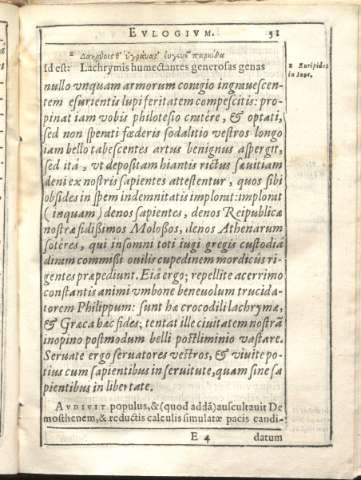 EVLOGIVM. 51
a Euripides
in Ione.
Id est: Lachrymis humectantes generosas genas
nullo vnquam armorum contigio ingruescen-
tem esurientis lupi feritatem compescitis: pro-
pinat iam vobis philotesio cratere, & optati,
sed non sperati fœderis sodalitio vestros longo
iam bello tabescentes artus benignus aspergit,
sed ità, vt depositam hiantis rictus sæuitiam
deni ex nostris sapientes attestentur, quos sibi
obsides in spem indemnitatis implorat: implorat
(inquam) denos sapientes, denos Reipublicæ
nostræ fidissimos Molossos, denos Athenarum
sotères, qui insomni toti iugi gregis custodiâ
dirum commissi ouilis cupedinem mordicùs ri-
gentes præpediunt. Eiâ ergo; repellite acerrimo
constantis animi vmbone beneuolum trucida-
torem Philippum: sunt hæ crocodili lachrymæ,
& Græca hæc fides; tentat ille ciuitatem nostrã
inopino postmodum belli postliminio vastare.
Seruate ergo seruatores vestros, & viuite po-
tius cum sapientibus in seruitute, quam sine sa
pientibus in libertate.
AVDIVIT populus, & (quod addã) auscultauit De
mosthenem, & reductis calculis simulatæ pacis candi-
E 4 datum